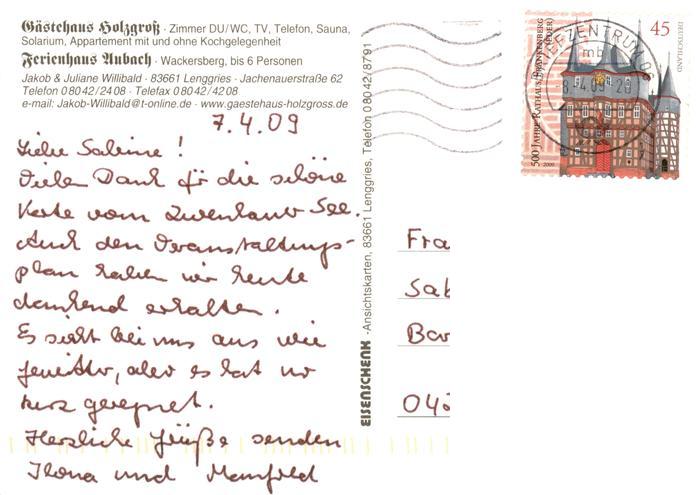 Gästehaus Holzgroß · Zimmer DU/WC, TV, Telefon, Sauna,
Solarium, Appartement mit und ohne Kochgelegenheit
Ferienhaus Aubach · Wackersberg, bis 6 Personen
Jakob & Juliane Willibald · 83661 Lenggries · Jachenauerstraße 62
Telefon 08042/2408 · Telefax 08042/4208
e-mail: Jakob-Willibald@t-online.de · www.gaestehaus-holzgross.de
7.4.09
Liebe Sabine!
Vielen Dank für die schöne
Karte vom See.
Auch den Veranstaltungs-
plan haben wir heute
dankend erhalten.
Es sieht bei uns aus wie
Gewitter, aber es hat nur
kurz geregnet.
Herzliche Grüße senden
Ilona und Manfred
EISENSCHENK - Ansichtskarten, 83661 Lenggries, Telefon 08042/8791
Fra
Sab
Bar
048
500 JAHRE RATHAUS FRANKENBERG (EDER)
45
DEUTSCHLAND
2009
BRIEFZENTRUM 08
mb
8.4.09